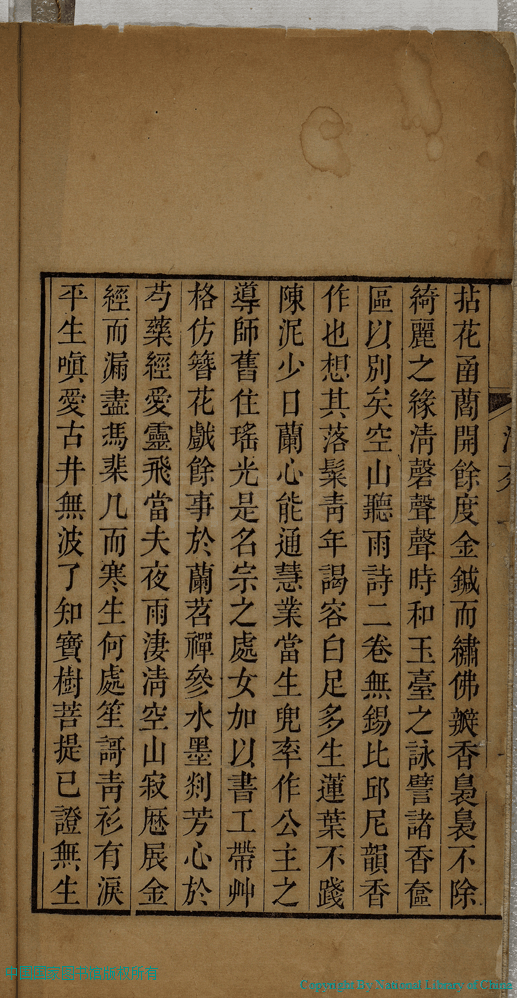 拈花函蕳開餘度金鍼而繡佛瓣香裊裊不除
綺麗之緣淸磬聲聲時和玉臺之詠譬諸香奩
區以別矣空山聽雨詩二卷無錫比邱尼韻香
作也想其落䰂靑年謁容白足多生蓮葉不踐
陳泥少日蘭心能通慧業當生兜率作公主之
導師舊住瑤光是名宗之處女加以書工帶艸
格仿簪花戲餘事於蘭苕禪參水墨剡芳心於
芍藥經愛靈飛當夫夜雨淒淸空山寂厯展金
經而漏盡馮棐几而寒生何處笙謌靑衫有淚
平生嗔愛古井無波了知寶樹菩提已證無生
Copyright By National Library of China